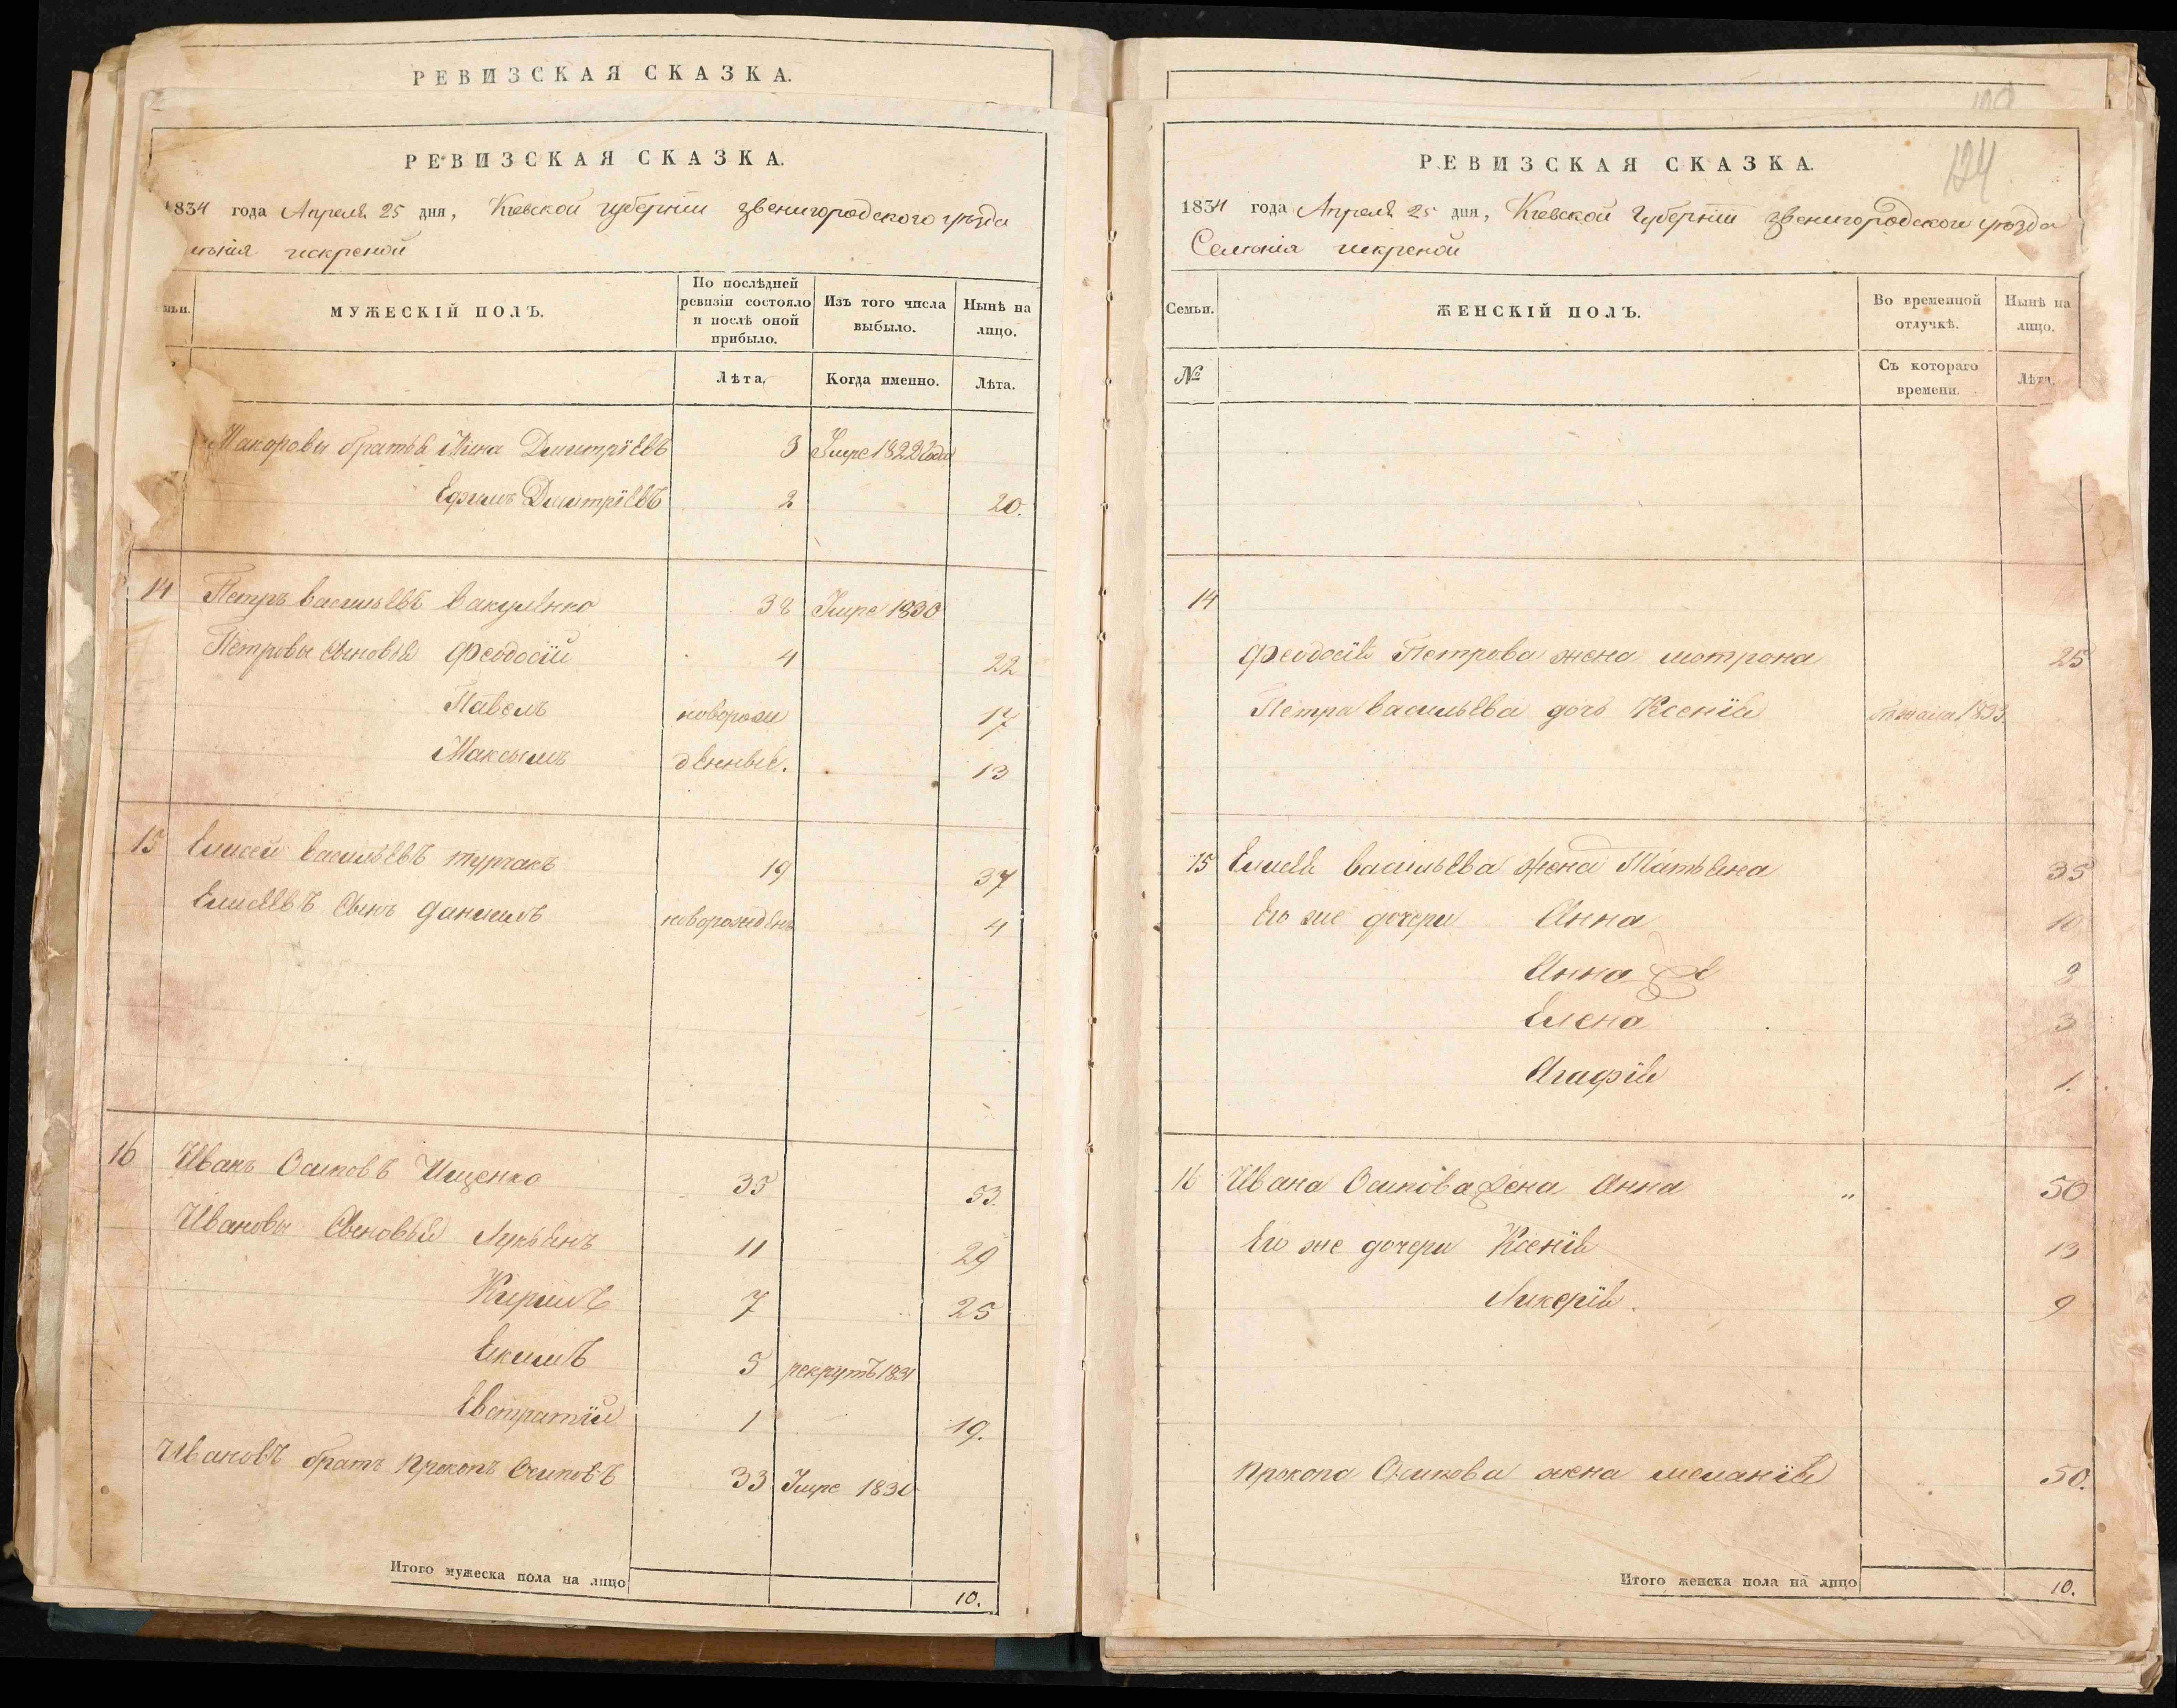 РЕВИЗСКАЯ СКАЗКА.
РЕВИЗСКАЯ СКАЗКА.
1834 года Апреля 25 дня, Киевской губернии звенигородского уезда
искреной
МУЖЕСКІЙ ПОЛЪ.
По послѣдней ревизіи состояло и послѣ оной прибыло.
Изъ того числа выбыло.
Нынѣ на лицо.
Лѣта.
Когда именно.
Лѣта.
Макаровы братья Мина Дмитріевъ 3 Умре 1822 года
Ефимъ Дмитріевъ 2 20.
14 Петръ васильевъ вакуленко 38 Умре 1830
Петровы сыновья Феодосій 4 22
Павелъ новорож 17
Максымъ денные. 13
15 Елисей васильевъ турчакъ 19 37
Елисеевъ сынъ данилъ новорожденъ 4
16 Иванъ Осиповъ Ищенко 35 53.
Ивановы сыновья Лукьянъ 11 29
Кирилъ 7 25
Екимъ 5 рекрутъ 1831
Евстратій 1 19.
Ивановъ братъ прокопъ Осиповъ 33 Умре 1830
Итого мужеска пола на лицо 10.
124
РЕВИЗСКАЯ СКАЗКА.
1834 года Апреля 25 дня, Киевской Губерніи звенигородского уезда
Селенія искреной
Семьи.
ЖЕНСКІЙ ПОЛЪ.
Во временной отлучкѣ.
Нынѣ на лицо.
№
Съ котораго времени.
Лѣта.
14
Феодосія Петрова жена мотрона 25
Петра васильева дочь Ксенія 1833.
15 Елисея васильева жена Татьяна 35
Его же дочери Анна 10
Анна 8
Елена 3
Агафія 1.
16 Ивана Осипова жена Анна " 50
Его же дочери Ксенія 13
Ликерія. 9
прокопа Осипова жена меланія 50.
Итого женска пола на лицо 10.